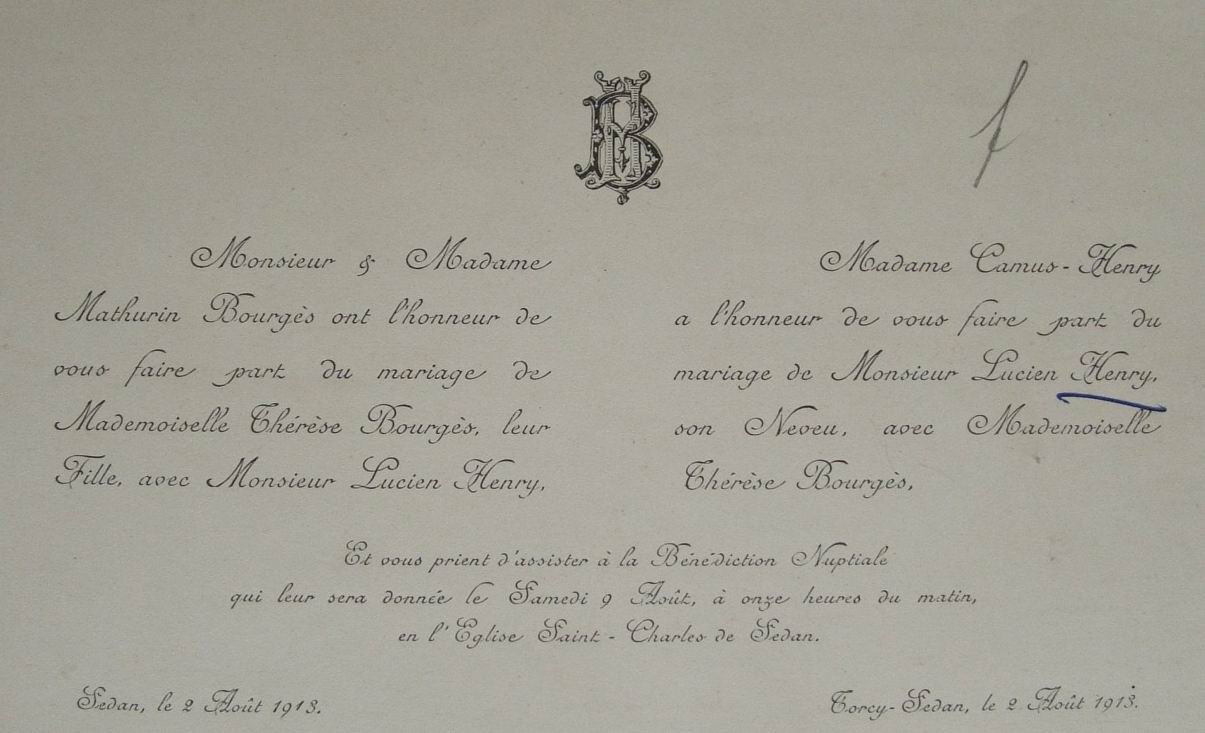 Monsieur & Madame
Mathurin Bourgès ont l'honneur de
vous faire part du mariage de
Mademoiselle Thérèse Bourgès, leur
Fille, avec Monsieur Lucien Henry,
Madame Camus-Henry
a l'honneur de vous faire part du
mariage de Monsieur Lucien Henry,
son Neveu, avec Mademoiselle
Thérèse Bourgès,
Et vous prient d'assister à la Bénédiction Nuptiale
qui leur sera donnée le Samedi 9 Août, à onze heures du matin,
en l'Eglise Saint-Charles de Sedan.
Sedan, le 2 Août 1913.
Torcy-Sedan, le 2 Août 1913.